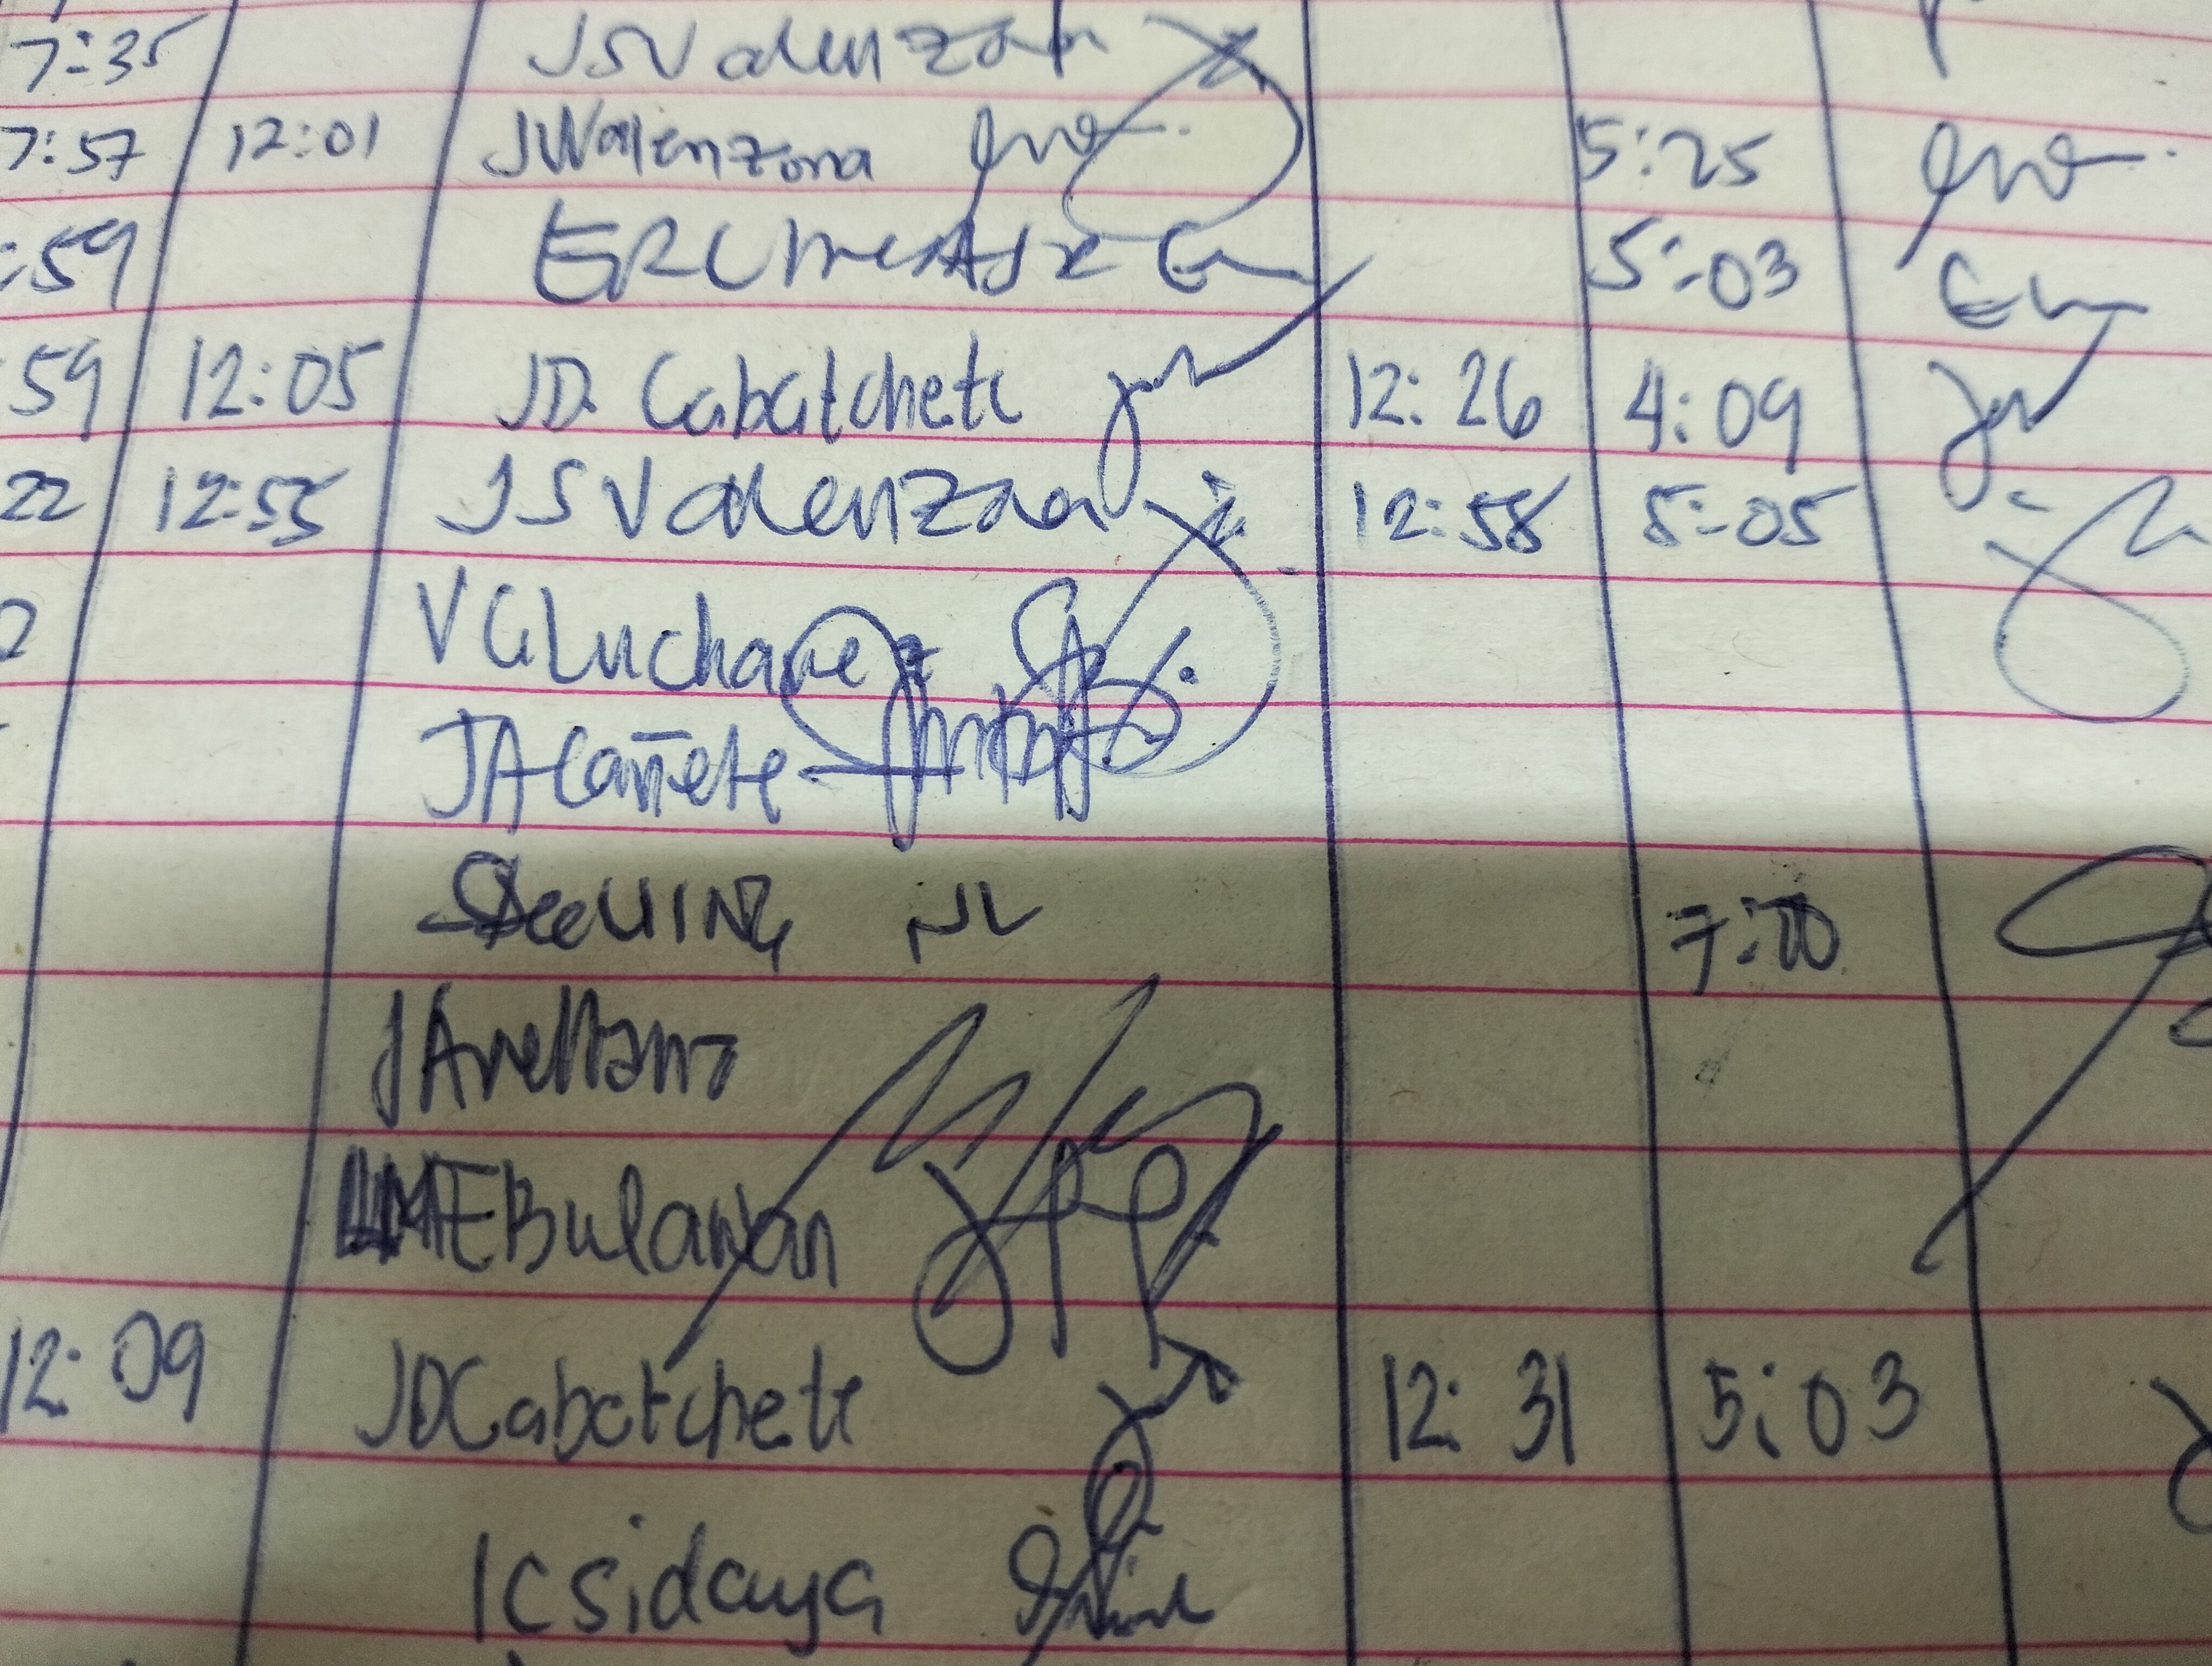 7:35 JSValenzona
7:57 12:01 JWValenzona 5:25
:59 5:03
59 12:05 JD. Cabatchete 12:26 4:09
22 12:55 JSValenzona 12:58 5:05
VGLuchavez
JACañete
7:00
JArellano
MEBulawan
12:09 JDCabatchete 12:31 5:03
ICsidaya